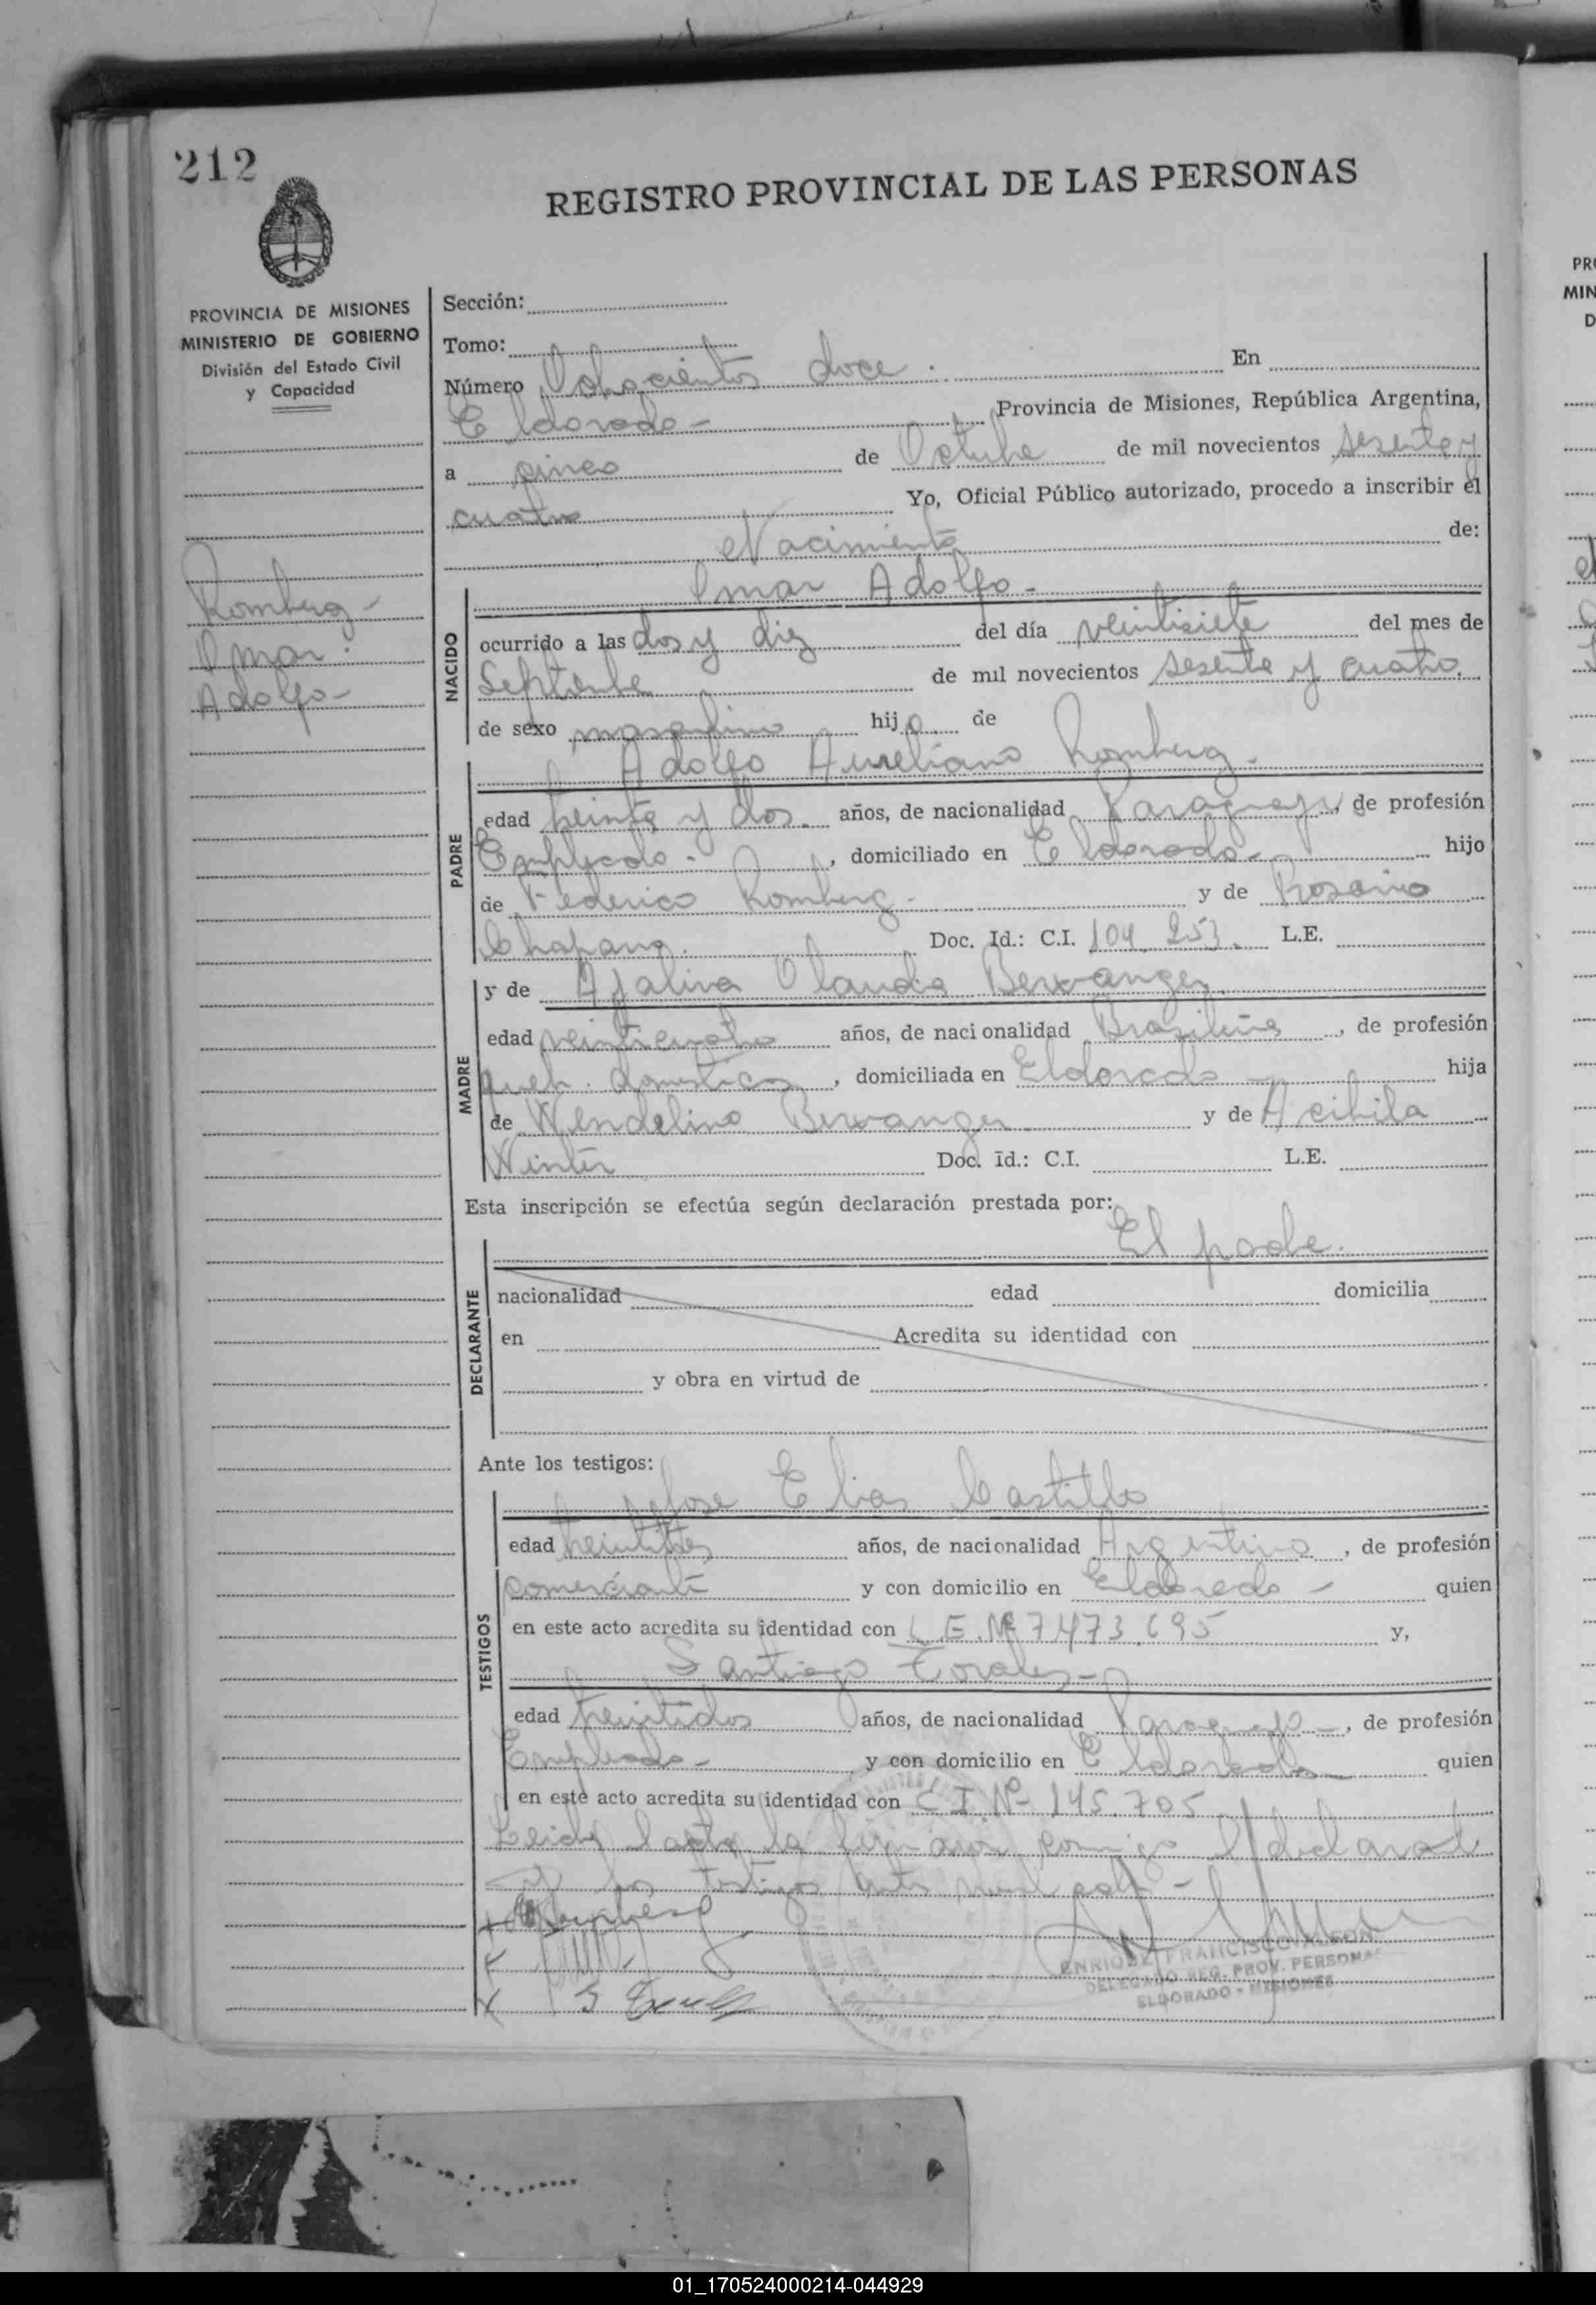 212
REGISTRO PROVINCIAL DE LAS PERSONAS
PROVINCIA DE MISIONES
MINISTERIO DE GOBIERNO
División del Estado Civil
y Capacidad
Romberg -
Omar
Adolfo -
Sección:
Tomo:
Número Doscientos doce. En
Eldorado - Provincia de Misiones, República Argentina,
a cinco de Octubre de mil novecientos sesenta y
cuatro Yo, Oficial Público autorizado, procedo a inscribir el
Nacimiento de:
Omar Adolfo -
NACIDO
ocurrido a las dos y diez del día veintisiete del mes de
Septiembre de mil novecientos sesenta y cuatro.
de sexo masculino hijo de
Adolfo Aureliano Romberg.
PADRE
edad treinta y dos. años, de nacionalidad Paraguayo, de profesión
Empleado - , domiciliado en Eldorado - hijo
de Federico Romberg - y de Rosario
Doc. Id.: C.I. 104.253. L.E.
MADRE
y de Claudia Berwanger
edad veinticuatro años, de nacionalidad Brasileña , de profesión
queh. domesticos , domiciliada en Eldorado - hija
de Wendelino Berwanger y de
Winter Doc. Id.: C.I. L.E.
Esta inscripción se efectúa según declaración prestada por:
El padre.
DECLARANTE
nacionalidad edad domicilia
en Acredita su identidad con
y obra en virtud de
Ante los testigos:
Jose Elias Castillo
TESTIGOS
edad treintitres años, de nacionalidad Argentino , de profesión
comerciante y con domicilio en Eldorado - quien
en este acto acredita su identidad con L.E. Nº 7.473.695 y,
Santiago Torales -
edad treintidos años, de nacionalidad Paraguayo - , de profesión
Empleado - y con domicilio en Eldorado - quien
en este acto acredita su identidad con C.I. Nº 145.705
Leida el acta la firman conmigo el declarante
y los testigos
ENRIQUE FRANCISCO
DELEGADO REG. PROV. PERSONAS
ELDORADO - MISIONES
PRO
MIN
D
01_170524000214-044929